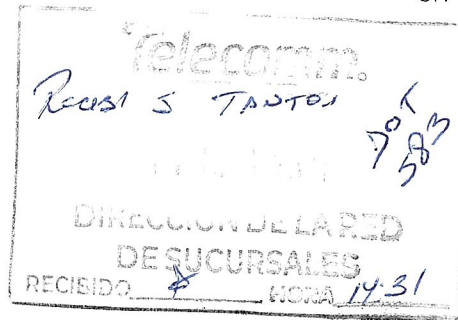 Telecomm.
Recibi 5 TANTOS
DIRECCION DE LA RED
DE SUCURSALES
RECIBIDO HORA 14:31